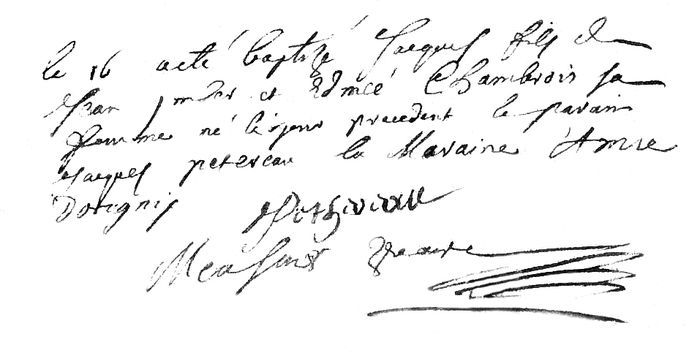 le 16 acté baptizé Jacques fils de
Jean et Edmeé Chambrois sa
femme né le jour precedent le parain
Jacques petereau la Maraine Amie
Dorignis